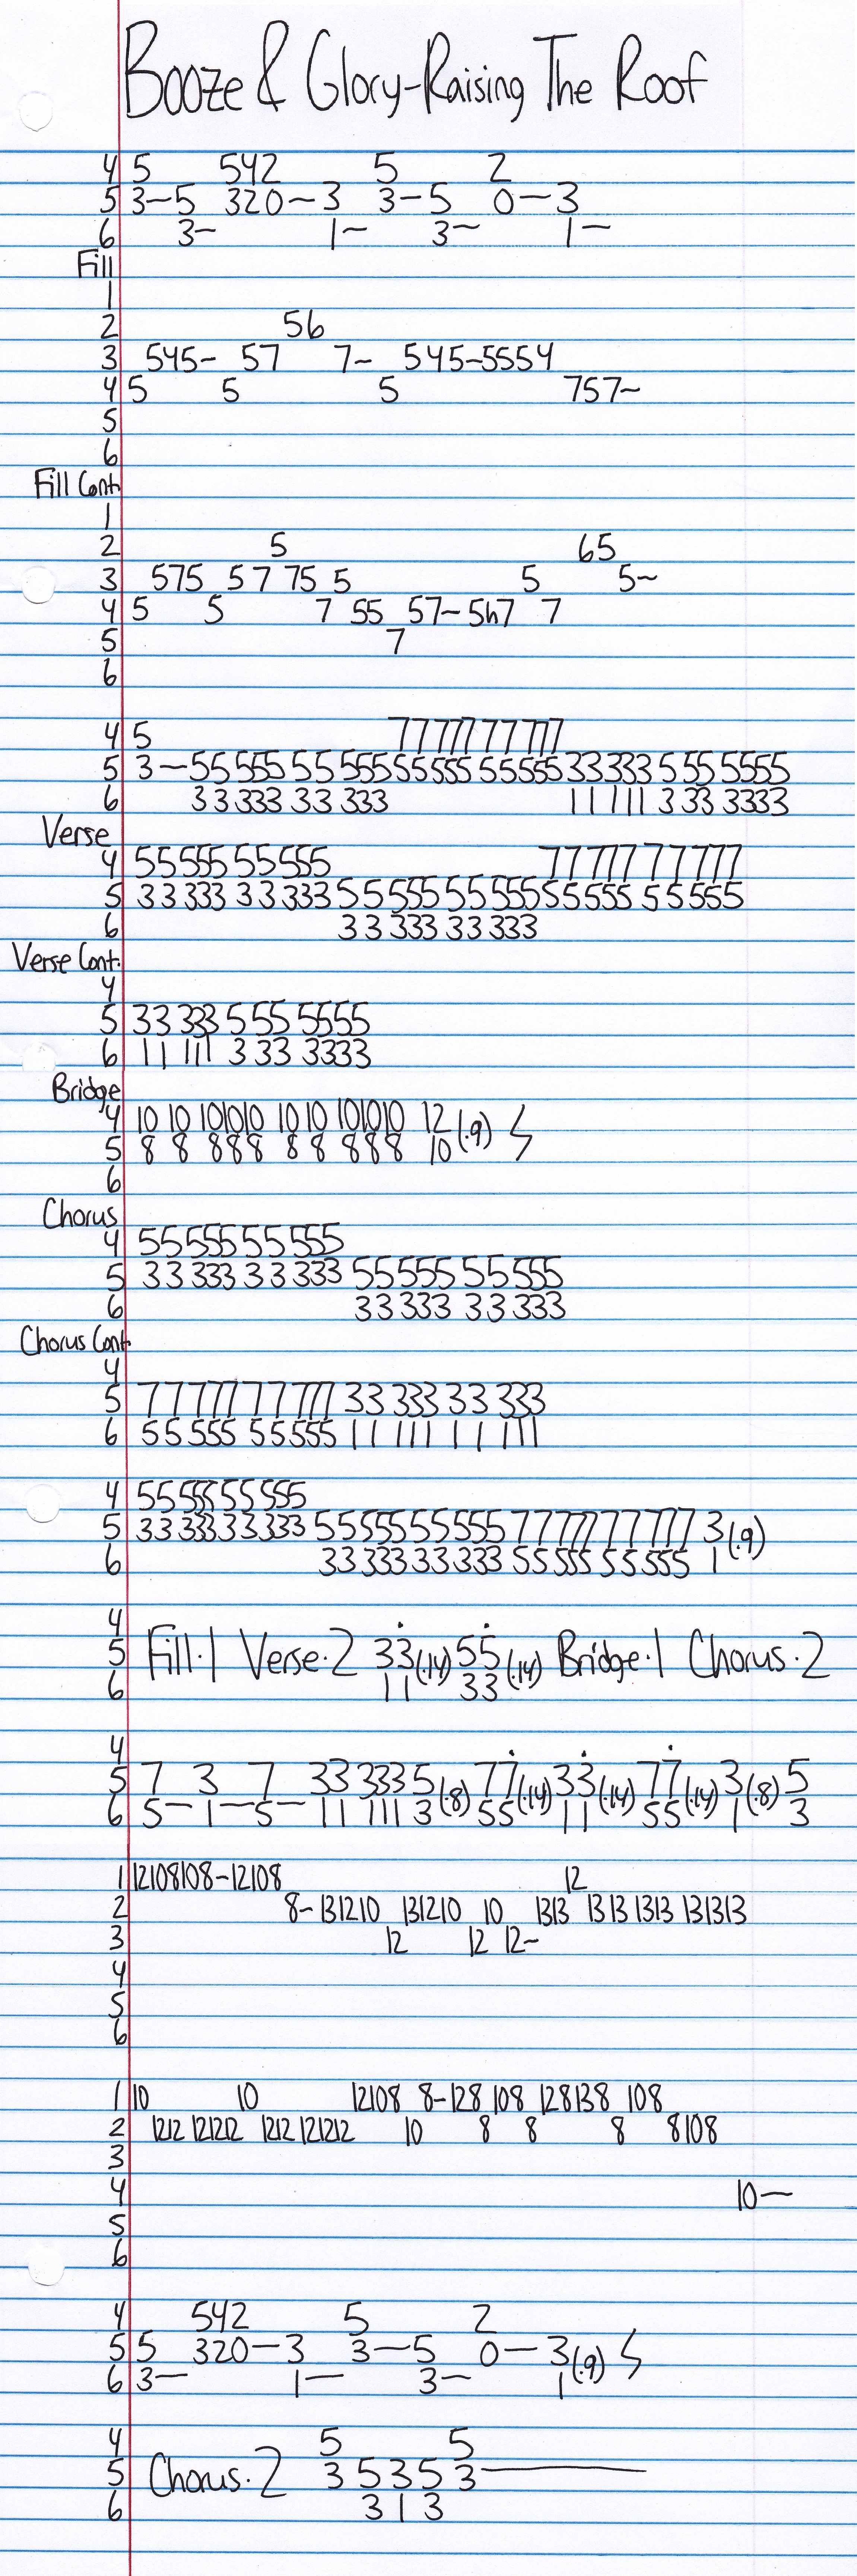 Booze & Glory-Raising The Roof
4 5 542 5 2
5 3-5 320-3 3-5 0-3
6 3- 1- 3- 1-
Fill
1
2 56
3 545- 57 7- 545-5554
4 5 5 5 757~
5
6
Fill Cont.
1
2 5 65
3 575 57 75 5 5 5~
4 5 5 7 55 57-5h7 7
5 7
6
4 5 77 777 77 777
5 3-55 555 55 555 55 555 55 555 33 333 5 55 5555
6 33 333 33 333 11 111 3 33 3333
Verse
4 55 555 55 555 77 777 77 777
5 33 333 33 333 55 555 55 555 55 555 55 555
6 33 333 33 333
Verse Cont.
4
5 33 333 5 55 5555
6 11 111 3 33 3333
Bridge
4 10 10 101010 10 10 101010 12
5 8 8 888 8 8 888 10 (.9)
6
Chorus
4 55 555 55 555
5 33 333 33 333 55 555 55 555
6 33 333 33 333
Chorus Cont.
4
5 77 777 77 777 33 333 33 333
6 55 555 55 555 11 111 11 111
4 55 555 55 555
5 33 333 33 333 55 555 55 555 77 777 77 777 3 (.9)
6 33 333 33 333 55 555 55 555 1
4
5 Fill.1 Verse.2 33 (.14) 55 (.14) Bridge.1 Chorus.2
6 11 33
4
5 7 3 7 33 333 5 (.8) 77 (.14) 33 (.14) 77 (.14) 3 (.8) 5
6 5- 1- 5- 11 111 3 55 11 55 1 3
1 12108108-12108 12
2 8-131210 131210 10 1313 1313 1313 131313
3 12 12 12-
4
5
6
1 10 10 12108 8-128 108 128138 108
2 1212 121212 1212 121212 10 8 8 8 8108
3
4 10-
5
6
4 542 5 2
5 5 320-3 3-5 0-3 (.9)
6 3- 1- 3- 1
4 5 5
5 Chorus.2 3 5 3 5 3-
6 3 1 3